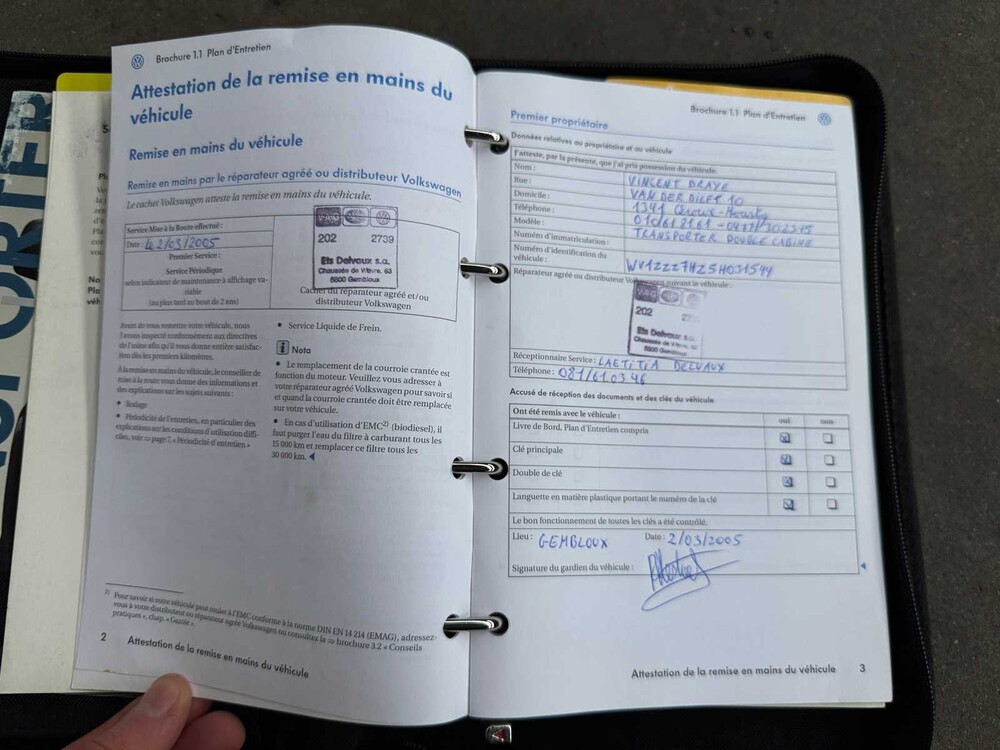 Brochure 1.1 Plan d'Entretien
Attestation de la remise en mains du
véhicule
Remise en mains du véhicule
Remise en mains par le réparateur agréé ou distributeur Volkswagen
Le cachet Volkswagen atteste la remise en mains du véhicule.
Service Mise à la Route effectué :
Date : 2/03/2005
Premier Service :
Service Périodique
selon indicateur de maintenance à affichage va-
riable
(au plus tard au bout de 2 ans)
202 2739
Ets Delvaux s.a.
Chaussée de Wavre, 63
5800 Gembloux
Cachet du réparateur agréé et/ou
distributeur Volkswagen
Avant de vous remettre votre véhicule, nous
l'avons inspecté conformément aux directives
de l'usine afin qu'il vous donne entière satisfac-
tion dès les premiers kilomètres.
À la remise en mains du véhicule, le conseiller de
mise à la route vous donne des informations et
des explications sur les sujets suivants :
• Rodage
• Périodicité de l'entretien, en particulier des
explications sur les conditions d'utilisation diffi-
ciles, voir ⇒ page 7, « Périodicité d'entretien »
• Service Liquide de Frein.
i Nota
• Le remplacement de la courroie crantée est
fonction du moteur. Veuillez vous adresser à
votre réparateur agréé Volkswagen pour savoir si
et quand la courroie crantée doit être remplacée
sur votre véhicule.
• En cas d'utilisation d'EMC2) (biodiesel), il
faut purger l'eau du filtre à carburant tous les
15 000 km et remplacer ce filtre tous les
30 000 km.
2) Pour savoir si votre véhicule peut rouler à l'EMC conforme à la norme DIN EN 14 214 (EMAG), adressez-
vous à votre distributeur ou réparateur agréé Volkswagen ou consultez la ⇒ brochure 3.2 « Conseils
pratiques », chap. « Gazole ».
2 Attestation de la remise en mains du véhicule
Brochure 1.1 Plan d'Entretien
Premier propriétaire
Données relatives au propriétaire et au véhicule
J'atteste, par la présente, que j'ai pris possession du véhicule.
Nom : VINCENT DRAYE
Rue : VAN DER DILFT 10
Domicile : 1341 Céroux-Mousty
Téléphone :
Modèle : TRANSPORTER DOUBLE CABINE
Numéro d'immatriculation :
Numéro d'identification du
véhicule : WV1ZZZ7HZ5H031544
Réparateur agréé ou distributeur Volkswagen suivant le véhicule :
202
Ets Delvaux s.a.
Chaussée de Wavre, 63
5800 Gembloux
Réceptionnaire Service : LAETITIA DELVAUX
Téléphone : 081/61.03.46
Accusé de réception des documents et des clés du véhicule
Ont été remis avec le véhicule : oui non
Livre de Bord, Plan d'Entretien compris
Clé principale
Double de clé
Languette en matière plastique portant le numéro de la clé
Le bon fonctionnement de toutes les clés a été contrôlé.
Lieu : GEMBLOUX Date : 2/03/2005
Signature du gardien du véhicule :
Attestation de la remise en mains du véhicule 3